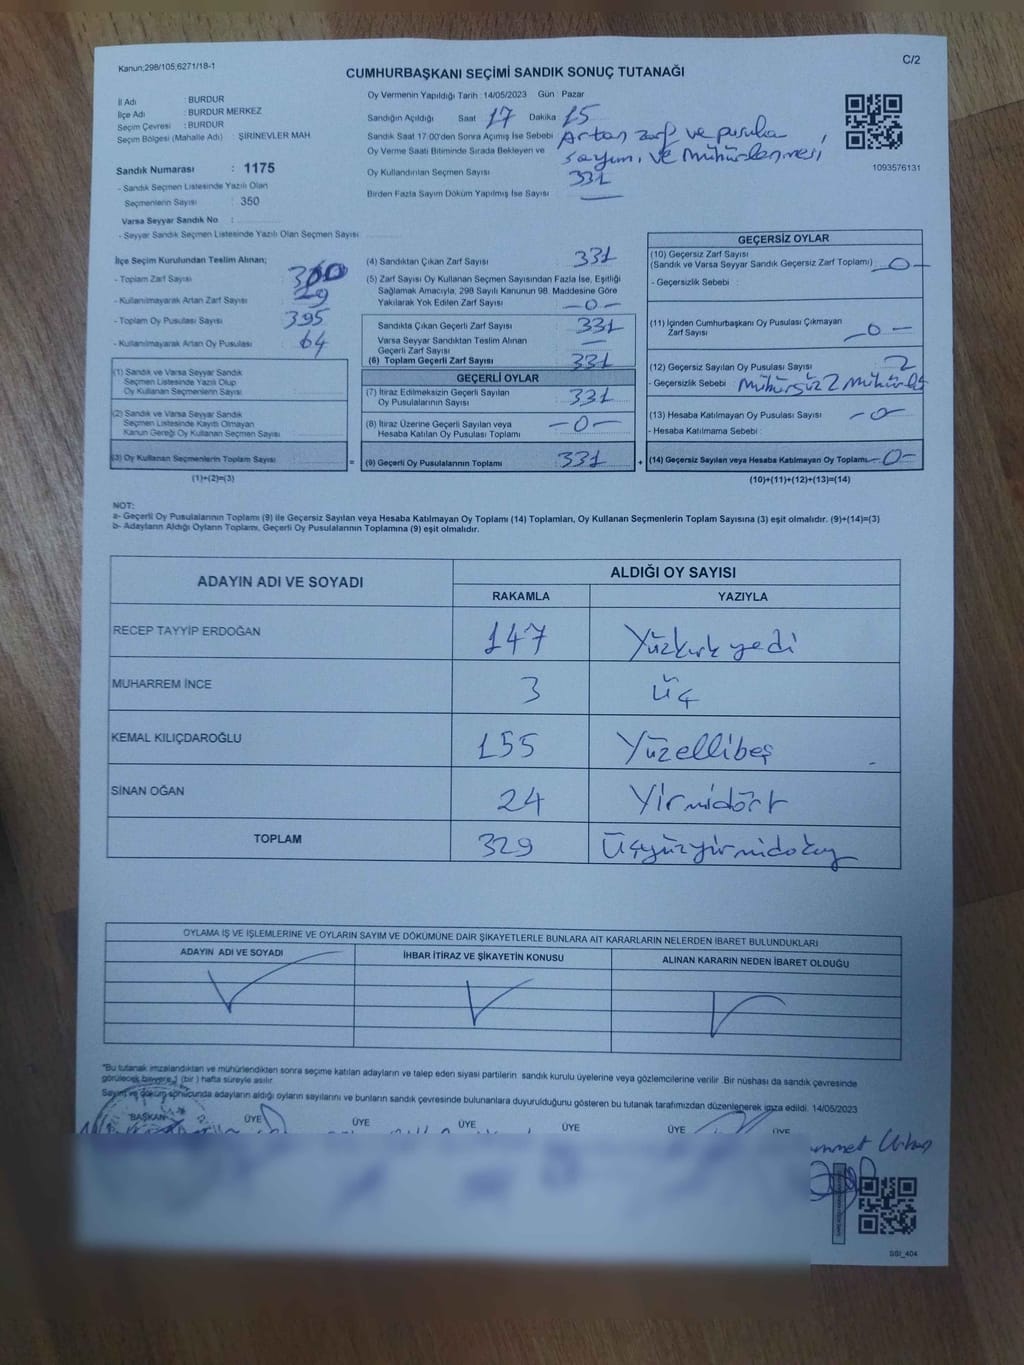 Kanun;298/105;6271/18-1
C/2
CUMHURBAŞKANI SEÇİMİ SANDIK SONUÇ TUTANAĞI
İl Adı : BURDUR
İlçe Adı : BURDUR MERKEZ
Seçim Çevresi : BURDUR
Seçim Bölgesi (Mahalle Adı) : ŞİRİNEVLER MAH
Sandık Numarası : 1175
- Sandık Seçmen Listesinde Yazılı Olan
Seçmenlerin Sayısı : 350
Varsa Seyyar Sandık No :
- Seyyar Sandık Seçmen Listesinde Yazılı Olan Seçmen Sayısı
Oy Vermenin Yapıldığı Tarih : 14/05/2023 Gün : Pazar
Sandığın Açıldığı Saat 17 Dakika 15
Sandık Saat 17:00'den Sonra Açılmış İse Sebebi Artan zarf ve pusula
Oy Verme Saati Bitiminde Sırada Bekleyen ve sayım, ve mühürlenmesi
Oy Kullandırılan Seçmen Sayısı 331
Birden Fazla Sayım Döküm Yapılmış İse Sayısı —
1093576131
İlçe Seçim Kurulundan Teslim Alınan;
- Toplam Zarf Sayısı
- Kullanılmayarak Artan Zarf Sayısı 29
- Toplam Oy Pusulası Sayısı 395
- Kullanılmayarak Artan Oy Pusulası 64
(1) Sandık ve Varsa Seyyar Sandık
Seçmen Listesinde Yazılı Olup
Oy Kullanan Seçmenlerin Sayısı
(2) Sandık ve Varsa Seyyar Sandık
Seçmen Listesinde Kayıtlı Olmayan
Kanun Gereği Oy Kullanan Seçmen Sayısı
(3) Oy Kullanan Seçmenlerin Toplam Sayısı
(1)+(2)=(3)
(4) Sandıktan Çıkan Zarf Sayısı 331
(5) Zarf Sayısı Oy Kullanan Seçmen Sayısından Fazla İse, Eşitliği
Sağlamak Amacıyla, 298 Sayılı Kanunun 98. Maddesine Göre
Yakılarak Yok Edilen Zarf Sayısı —0—
Sandıkta Çıkan Geçerli Zarf Sayısı 331
Varsa Seyyar Sandıktan Teslim Alınan
Geçerli Zarf Sayısı —
(6) Toplam Geçerli Zarf Sayısı 331
GEÇERLİ OYLAR
(7) İtiraz Edilmeksizin Geçerli Sayılan
Oy Pusulalarının Sayısı 331
(8) İtiraz Üzerine Geçerli Sayılan veya
Hesaba Katılan Oy Pusulası Toplamı —0—
= (9) Geçerli Oy Pusulalarının Toplamı 331 +
GEÇERSİZ OYLAR
(10) Geçersiz Zarf Sayısı
(Sandık ve Varsa Seyyar Sandık Geçersiz Zarf Toplamı) —0—
- Geçersizlik Sebebi :
(11) İçinden Cumhurbaşkanı Oy Pusulası Çıkmayan
Zarf Sayısı —0—
(12) Geçersiz Sayılan Oy Pusulası Sayısı 2
- Geçersizlik Sebebi : Mühürsüz 2
(13) Hesaba Katılmayan Oy Pusulası Sayısı —0—
- Hesaba Katılmama Sebebi :
(14) Geçersiz Sayılan veya Hesaba Katılmayan Oy Toplamı —0—
(10)+(11)+(12)+(13)=(14)
NOT:
a- Geçerli Oy Pusulalarının Toplamı (9) ile Geçersiz Sayılan veya Hesaba Katılmayan Oy Toplamı (14) Toplamları, Oy Kullanan Seçmenlerin Toplam Sayısına (3) eşit olmalıdır. (9)+(14)=(3)
b- Adayların Aldığı Oyların Toplamı, Geçerli Oy Pusulalarının Toplamına (9) eşit olmalıdır.
ADAYIN ADI VE SOYADI ALDIĞI OY SAYISI
RAKAMLA YAZIYLA
RECEP TAYYİP ERDOĞAN 147 Yüzkırkyedi
MUHARREM İNCE 3 Üç
KEMAL KILIÇDAROĞLU 155 Yüzellibeş
SİNAN OĞAN 24 Yirmidört
TOPLAM 329 Üçyüzyirmidokuz
OYLAMA İŞ VE İŞLEMLERİNE VE OYLARIN SAYIM VE DÖKÜMÜNE DAİR ŞİKAYETLERLE BUNLARA AİT KARARLARIN NELERDEN İBARET BULUNDUKLARI
ADAYIN ADI VE SOYADI İHBAR İTİRAZ VE ŞİKAYETİN KONUSU ALINAN KARARIN NEDEN İBARET OLDUĞU
*Bu tutanak imzalandıktan ve mühürlendikten sonra seçime katılan adayların ve talep eden siyasi partilerin sandık kurulu üyelerine veya gözlemcilerine verilir. Bir nüshası da sandık çevresinde
görülecek bir yere 1 (bir) hafta süreyle asılır.
Sayım ve döküm sonucunda adayların aldığı oyların sayılarını ve bunların sandık çevresinde bulunanlara duyurulduğunu gösteren bu tutanak tarafımızdan düzenlenerek imza edildi. 14/05/2023
BAŞKAN ÜYE ÜYE ÜYE ÜYE ÜYE ÜYE
SSI_404